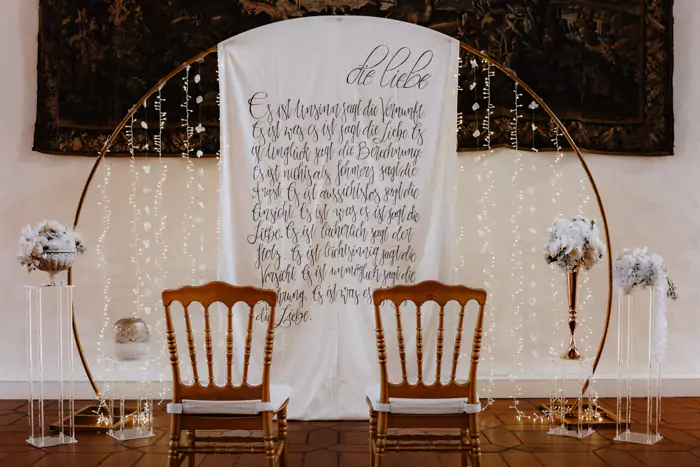 die liebe
Es ist Unsinn sagt die Vernunft.
Es ist was es ist sagt die Liebe. Es
ist Unglück sagt die Berechnung.
Es ist nichts als Schmerz sagt die
Angst. Es ist aussichtslos sagt die
Einsicht. Es ist was es ist sagt die
Liebe. Es ist lächerlich sagt der
Stolz. Es ist leichtsinnig sagt die
Vorsicht. Es ist unmöglich sagt die
Es ist was es
die Liebe.